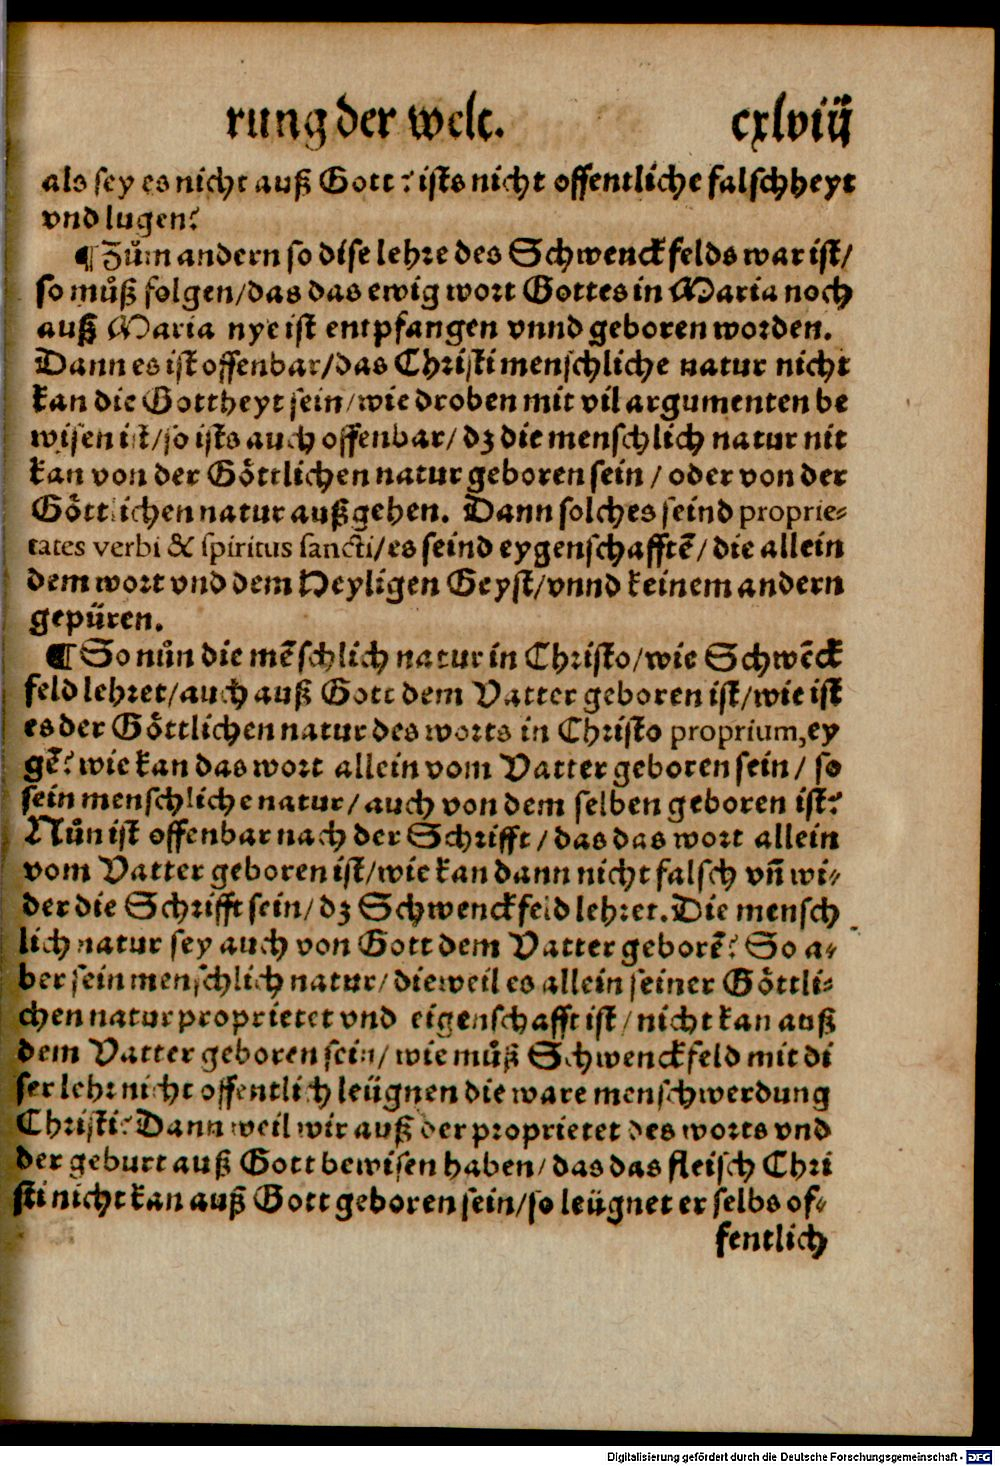 rung der welt. cxlviij
als sey es nicht auß Gott? ists nicht offentliche falschheyt
vnd lugen?
¶ Zům andern so dise lehre des Schwenckfelds war ist/
so můß folgen/das das ewig wort Gottes in Maria noch
auß Maria nye ist entpfangen vnnd geboren worden.
Dann es ist offenbar/das Christi menschliche natur nicht
kan die Gottheyt sein/wie droben mit vil argumenten be
wisen ist/so ists auch offenbar/dz die menschlich natur nit
kan von der Göttlichen natur geboren sein/oder von der
Göttlichen natur außgehen. Dann solches seind proprie-
tates verbi & spiritus sancti/es seind eygenschafftē/die allein
dem wort vnd dem Heyligen Geyst/vnnd keinem andern
gepüren.
¶ So nůn die mēschlich natur in Christo/wie Schwēck
feld lehret/auch auß Gott dem Vatter geboren ist/wie ist
es der Göttlichen natur des worts in Christo proprium,ey
gē? wie kan das wort allein vom Vatter geboren sein/so
sein menschliche natur/auch von dem selben geboren ist?
Nůn ist offenbar nach der Schrifft/das das wort allein
vom Vatter geboren ist/wie kan dann nicht falsch vñ wi-
der die Schrifft sein/dz Schwenckfeld lehret. Die mensch
lich natur sey auch von Gott dem Vatter geborē? So a-
ber sein menschlich natur/dieweil es allein seiner Göttli-
chen natur proprietet vnd eigenschafft ist/nicht kan auß
dem Vatter geboren sein/wie můß Schwenckfeld mit di
ser lehr nicht offentlich leügnen die ware menschwerdung
Christi? Dann weil wir auß der proprietet des worts vnd
der geburt auß Gott bewisen haben/das das fleisch Chri
sti nicht kan auß Gott geboren sein/so leügnet er selbs of-
fentlich
Digitalisierung gefördert durch die Deutsche Forschungsgemeinschaft - DFG